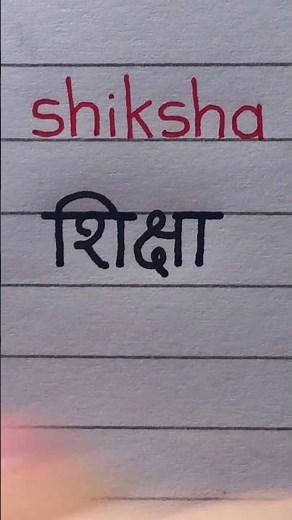 shiksha
शिक्षा